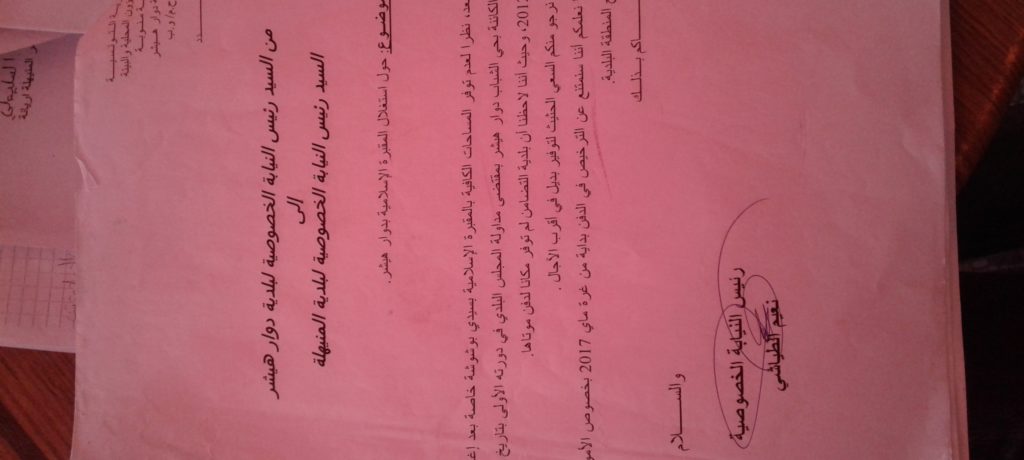 من السيد رئيس النيابة الخصوصية لبلدية دوار هيشر
إلى
السيد رئيس النيابة الخصوصية لبلدية المنيهلة
حول استغلال المقبرة الإسلامية بدوار هيشر.
بعد، نظرا لعدم توفر المساحات الكافية بالمقبرة الإسلامية بسيدي بوشوشة خاصة بعد
الكائنة بحي الشباب دوار هيشر بمقتضى مداولة المجلس البلدي في دورته الأولى بتاريخ
2012، وحيث أننا لاحظنا أن بلدية التضامن لم توفر مكانا لدفن موتاها.
نرجو منكم السعي الحثيث لتوفير بديل في أقرب الآجال.
نعلمكم أننا سنمتنع عن الترخيص في الدفن بداية من غرة ماي 2017 بخصوص
المنطقة البلدية.
والســــلام
رئيس النيابة الخصوصية
نعيم الطياشي